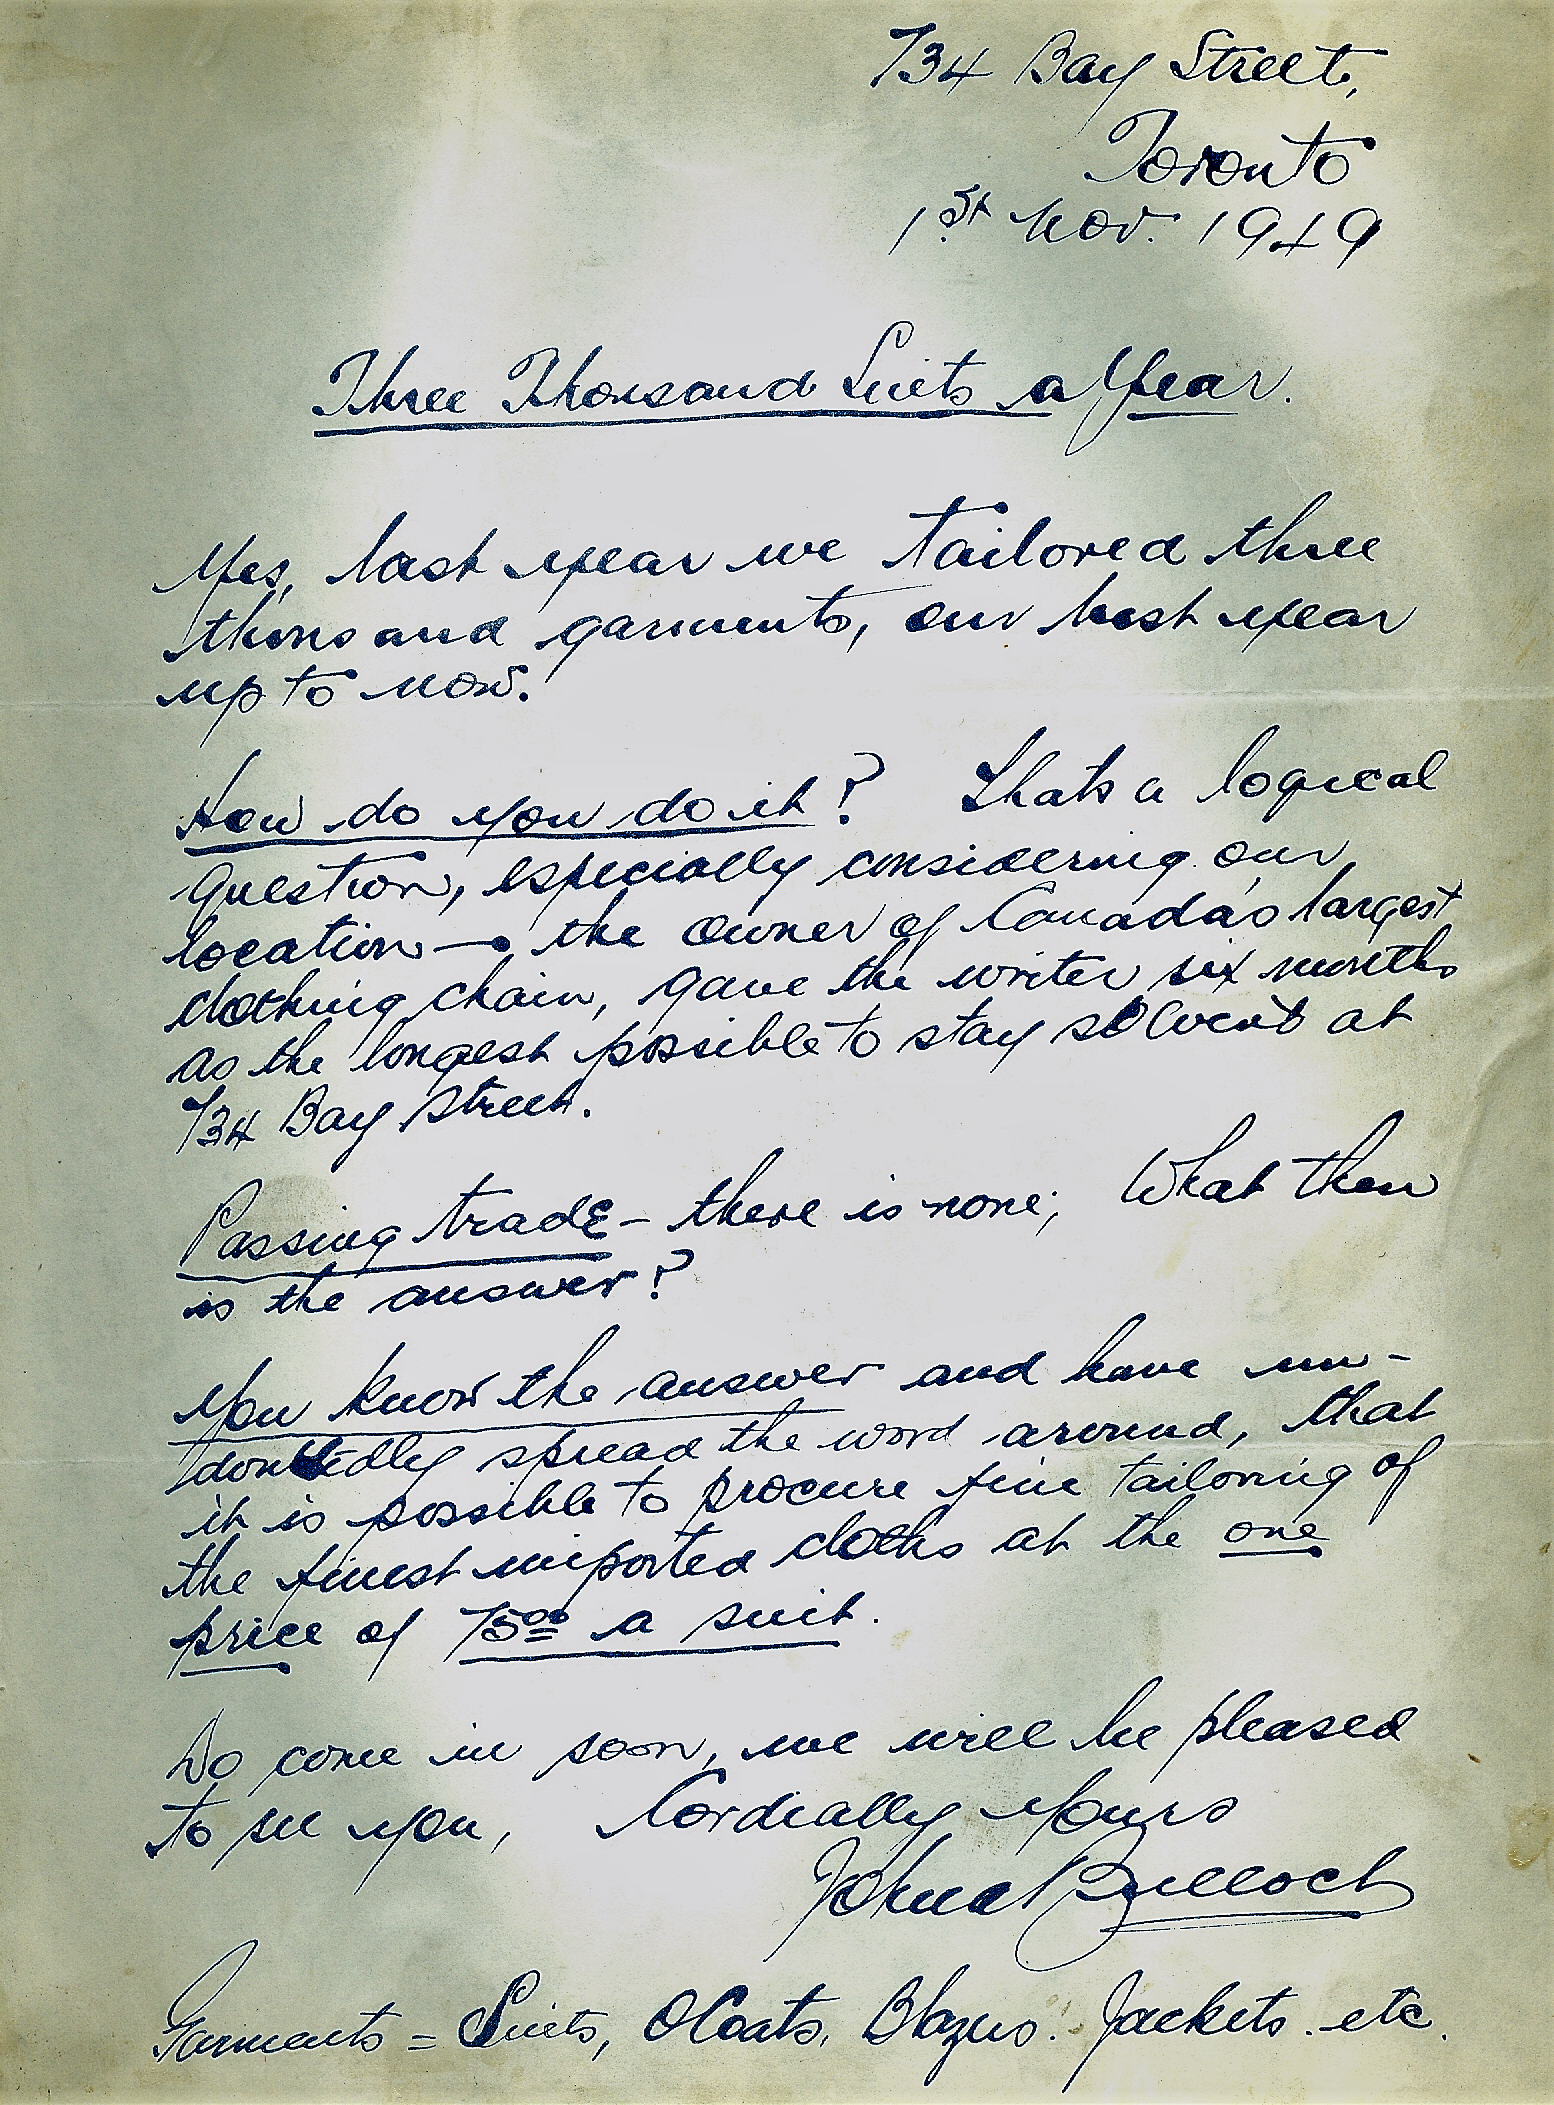 734 Bay Street,
Toronto
1st Nov. 1949
Three Thousand Suits a Year.
Yes, last year we tailored three
thousand garments, our best year
up to now.
How do you do it? Thats a logical
question, especially considering our
location — the owner of Canada's largest
clothing chain, gave the writer six months
as the longest possible to stay solvent at
734 Bay Street.
Passing trade – there is none; What then
is the answer?
You know the answer and have un-
doubtedly spread the word around, that
it is possible to procure fine tailoring of
the finest imported cloths at the one
price of 7500 a suit.
Do come in soon, we will be pleased
to see you, Cordially yours
John A Bulloch
Garments = Suits, OCoats, Blazers. Jackets. etc.